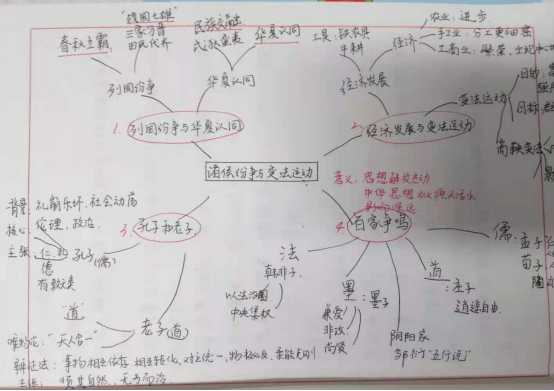 "战国七雄"
三家分晋
田氏代齐
春秋五霸
列国纷争
华夏认同
华夏认同
1.列国纷争与华夏认同
工具:铁农具
牛耕
农业:进步
手工业:分工更细密
工商业:繁荣
经济
经济发展
变法运动
目的:
目标:
商鞅变法
2.经济发展与变法运动
诸侯纷争与变法运动
背景:礼崩乐坏,社会动荡
核心:伦理,政治
主张:仁、礼
德
有教无类
孔子(儒)
3.孔子和老子
"道"
老子(道)
唯物论:"天人合一"
辩证法:事物相互依存,相互转化,对立统一,物极必反,柔能克刚
主张:顺其自然,无为而治
意义:思想解放运动
中华思想文化源头活水
影响深远
4.百家争鸣
法
韩非子
以法治国
中央集权
墨:墨子
兼爱
非攻
尚贤
阴阳家
邹衍"五行说"
道:庄子
逍遥自由
儒:孟子
荀子